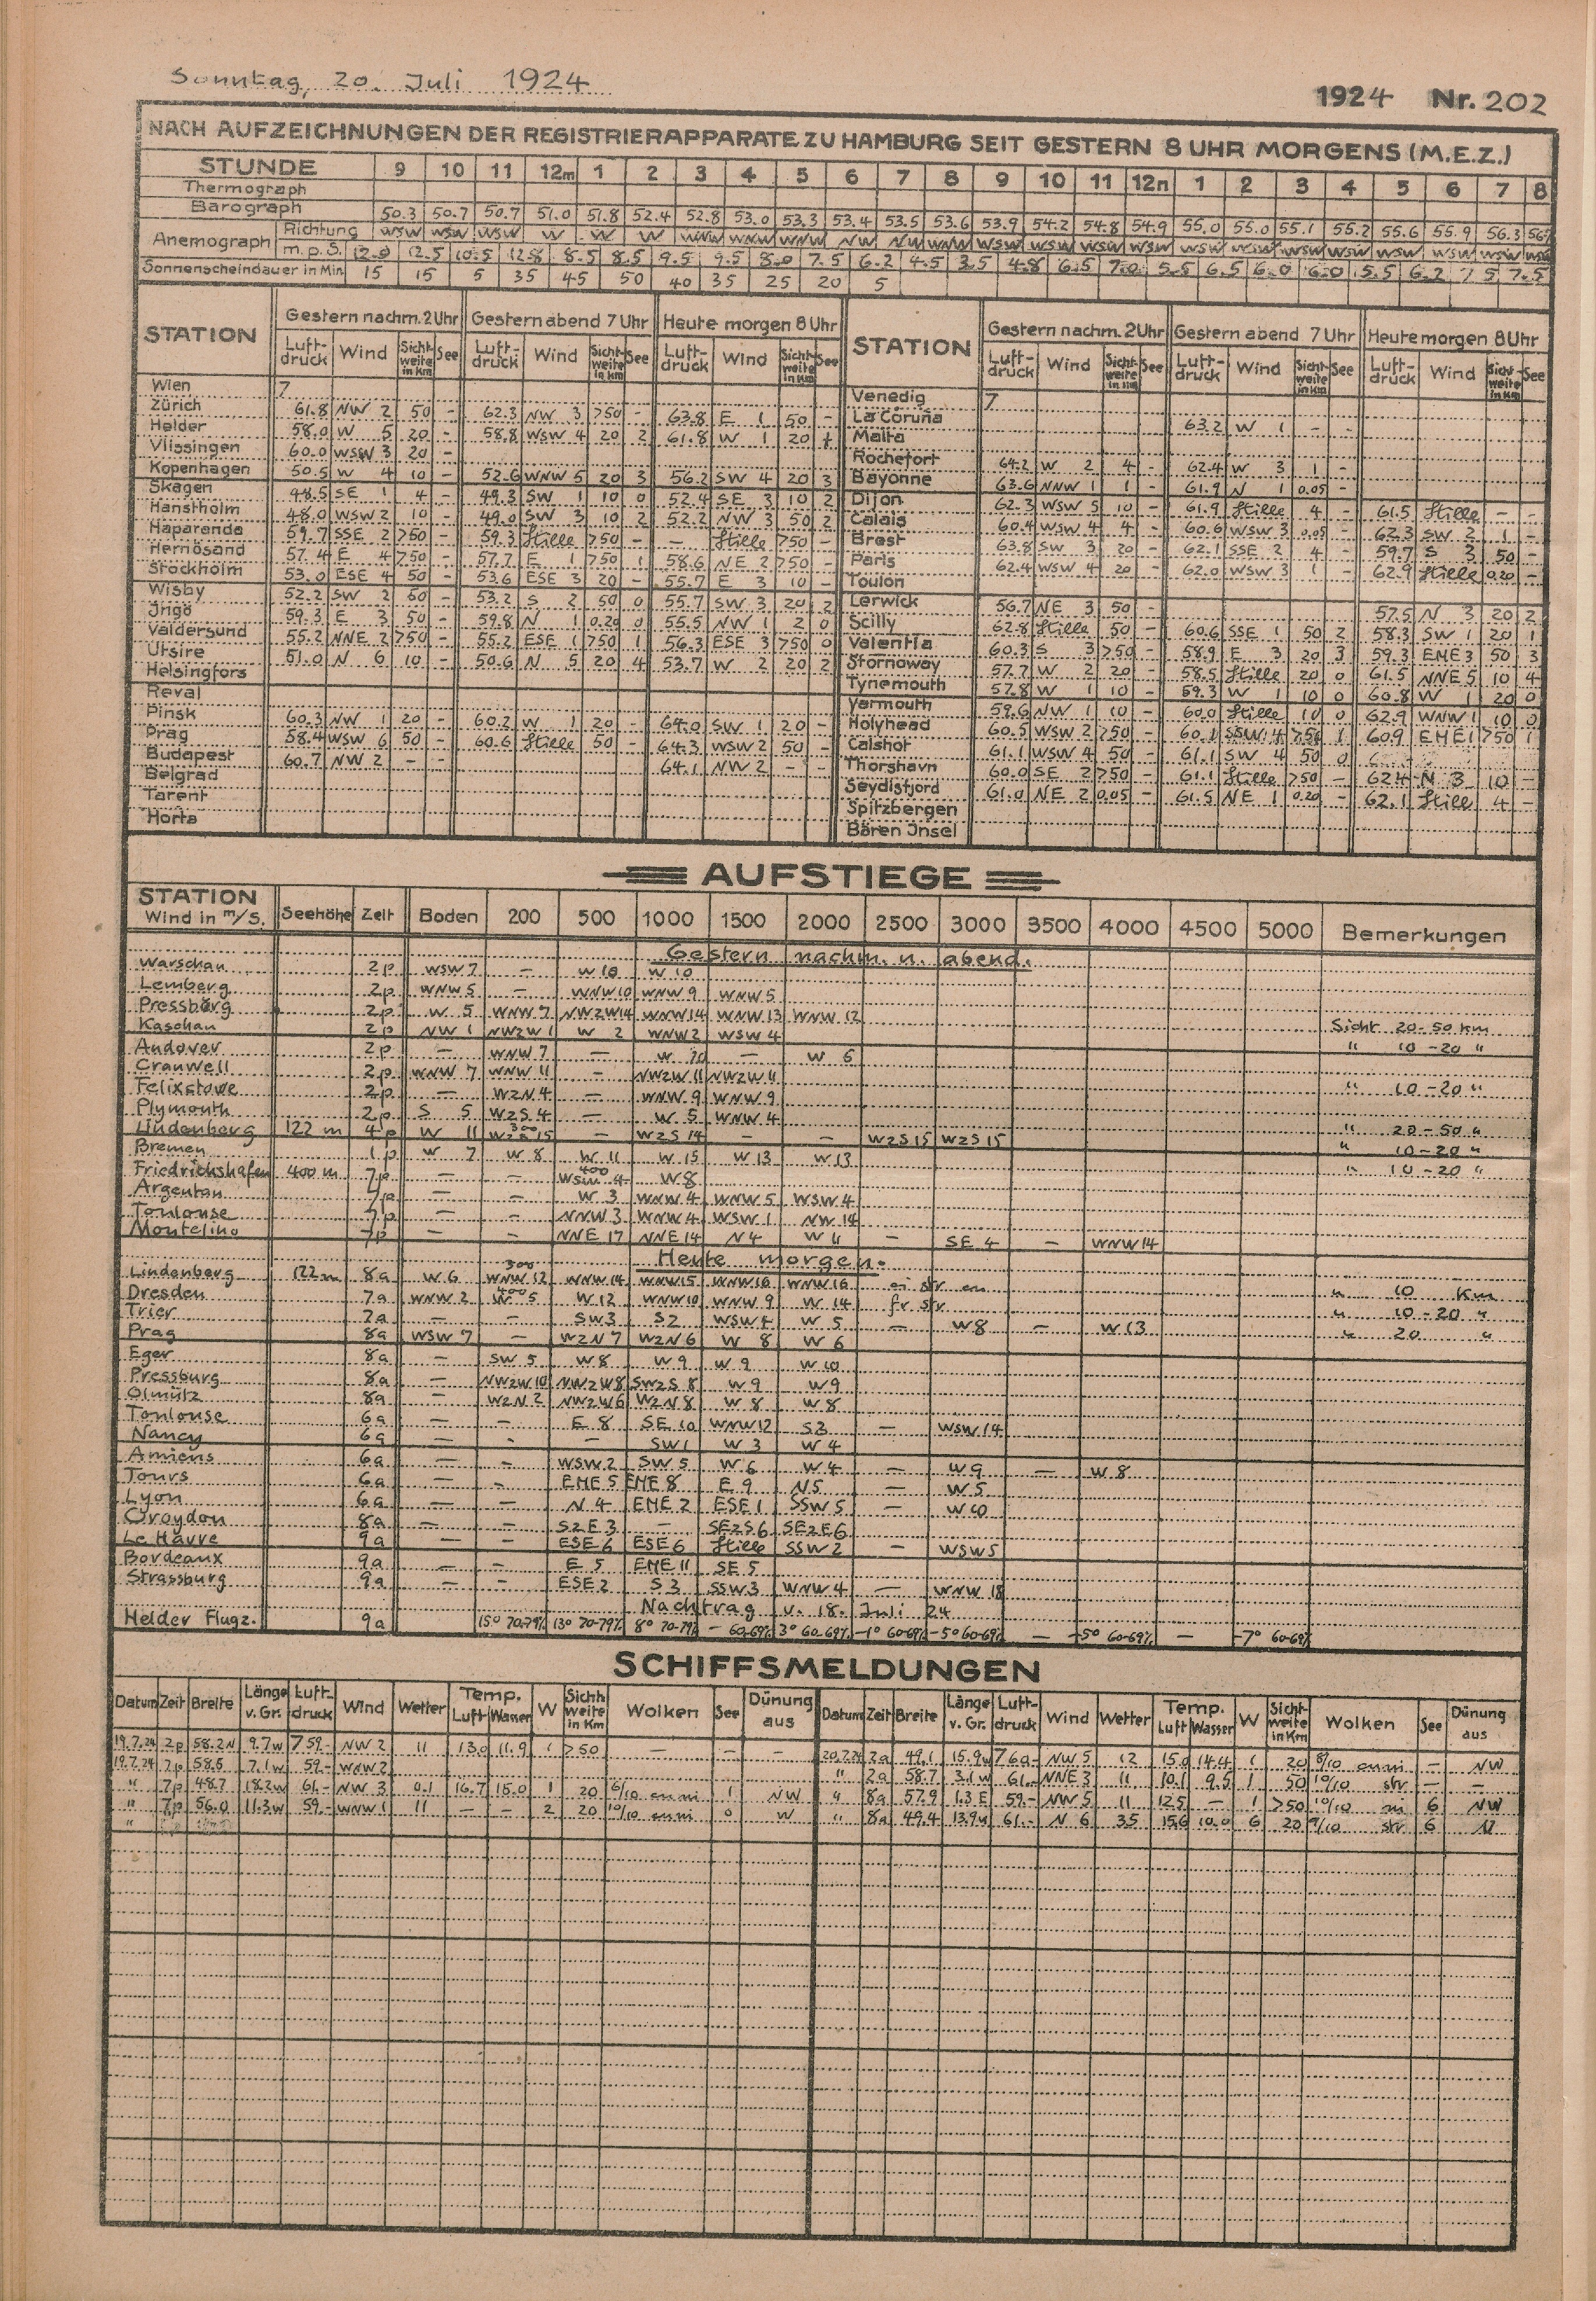 Sonntag, 20. Juli 1924
1924 Nr. 202
NACH AUFZEICHNUNGEN DER REGISTRIERAPPARATE ZU HAMBURG SEIT GESTERN 8 UHR MORGENS (M.E.Z.)
STUNDE 9 10 11 12m 1 2 3 4 5 6 7 8 9 10 11 12n 1 2 3 4 5 6 7 8
Thermograph
Barograph 50.3 50.7 50.7 51.0 51.8 52.4 52.8 53.0 53.3 53.4 53.5 53.6 53.9 54.2 54.8 54.9 55.0 55.0 55.1 55.2 55.6 55.9 56.3
Anemograph Richtung WSW WSW WSW W W W WNW WNW WNW NW NW WNW WSW WSW WSW WSW WSW WSW WSW WSW WSW WSW WSW WSW
m.p.S. 12.0 12.5 10.5 12.8 8.5 8.5 9.5 9.5 8.0 7.5 6.2 4.5 3.5 4.8 6.5 7.0 5.5 6.5 6.0 6.0 5.5 6.2 7.5 7.5
Sonnenscheindauer in Min. 15 15 5 35 45 50 40 35 25 20 5
STATION Gestern nachm. 2 Uhr Gestern abend 7 Uhr Heute morgen 8 Uhr STATION Gestern nachm. 2 Uhr Gestern abend 7 Uhr Heute morgen 8 Uhr
Luft-druck Wind Sicht-weite in km See Luft-druck Wind Sicht-weite in km See Luft-druck Wind Sicht-weite in km See Luft-druck Wind Sicht-weite in km See Luft-druck Wind Sicht-weite in km See Luft-druck Wind Sicht-weite in km See
Wien 7 Venedig 7
Zürich 61.8 NW 2 50 - 62.3 NW 3 >50 - 63.8 E 1 50 - La Coruña 63.2 W 1 - -
Helder 58.0 W 5 20 - 58.8 WSW 4 20 2 61.8 W 1 20 Malta
Vlissingen 60.0 WSW 3 20 - Rochefort 64.2 W 2 4 - 62.4 W 3 1 -
Kopenhagen 50.5 W 4 10 - 52.6 WNW 5 20 3 56.2 SW 4 20 3 Bayonne 63.6 NNW 1 1 - 61.9 N 1 0.05 -
Skagen 48.5 SE 1 4 - 49.3 SW 1 10 0 52.4 SE 3 10 2 Dijon 62.3 WSW 5 10 - 61.9 Stille 4 - 61.5 Stille - -
Hanstholm 48.0 WSW 2 10 - 49.0 SW 3 10 2 52.2 NW 3 50 2 Calais 60.4 WSW 4 4 - 60.6 WSW 3 0.05 - 62.3 SW 2 1 -
Haparanda 59.7 SSE 2 >50 - 59.3 Stille >50 - - Stille >50 - Brest 63.8 SW 3 20 - 62.1 SSE 2 4 - 59.7 S 3 50 -
Hernösand 57.4 E 4 >50 - 57.7 E 1 >50 1 58.6 NE 2 >50 - Paris 62.4 WSW 4 20 - 62.0 WSW 3 1 - 62.9 Stille 0.20 -
Stockholm 53.0 ESE 4 50 - 53.6 ESE 3 20 - 55.7 E 3 10 - Toulon
Wisby 52.2 SW 2 50 - 53.2 S 2 50 0 55.7 SW 3 20 2 Lerwick 56.7 NE 3 50 - 57.5 N 3 20 2
Jngö 59.3 E 3 50 - 59.8 N 1 0.20 0 55.5 NW 1 2 0 Scilly 62.8 Stille 50 - 60.6 SSE 1 50 2 58.3 SW 1 20 1
Valdersund 55.2 NNE 2 >50 - 55.2 ESE 1 >50 1 56.3 ESE 3 >50 0 Valentia 60.3 S 3 >50 - 58.9 E 3 20 3 59.3 ENE 3 50 3
Utsire 51.0 N 6 10 - 50.6 N 5 20 4 53.7 W 2 20 2 Stornoway 57.7 W 2 20 - 58.5 Stille 20 0 61.5 NNE 5 10 4
Helsingfors Tynemouth 57.8 W 1 10 - 59.3 W 1 10 0 60.8 W 1 20 0
Reval Yarmouth 59.6 NW 1 10 - 60.0 Stille 10 0 62.9 WNW 1 10 0
Pinsk 60.3 NW 1 20 - 60.2 W 1 20 - 64.0 SW 1 20 - Holyhead 60.5 WSW 2 >50 - 60.1 SSW 4 >50 1 60.9 ENE 1 >50 1
Prag 58.4 WSW 6 50 - 60.6 Stille 50 - 64.3 WSW 2 50 - Calshot 61.1 WSW 4 50 - 61.1 SW 4 50 0
Budapest 60.7 NW 2 - - 64.1 NW 2 - - Thorshavn 60.0 SE 2 >50 - 61.1 Stille >50 - 62.4 N 3 10 -
Belgrad Seydisfjord 61.0 NE 2 0.05 - 61.5 NE 1 0.20 - 62.1 Stille 4 -
Tarent Spitzbergen
Horta Bären Jnsel
AUFSTIEGE
STATION Wind in m/S. Seehöhe Zeit Boden 200 500 1000 1500 2000 2500 3000 3500 4000 4500 5000 Bemerkungen
Gestern nachm. u. abend.
Warschau 2p WSW 7 - W 10 W 10
Lemberg 2p WNW 5 - WNW 10 WNW 9 WNW 5
Pressburg 2p W 5 WNW 7 NW2W 14 WNW 14 WNW 13 WNW 12
Kaschau 2p NW 1 NW2W 1 W 2 WNW 2 WSW 4 Sicht 20-50 km
Andover 2p - WNW 7 - W 10 - W 6 " 10-20 "
Cranwell 2p WNW 7 WNW 11 - NW2W 11 NW2W 11
Felixstowe 2p - W2N 4 - WNW 9 WNW 9 " 10-20 "
Plymouth 2p S 5 W2S 4 - W 5 WNW 4
Lindenberg 122 m 4p W 11 300 W2S 15 - W2S 14 - - W2S 15 W2S 15 " 20-50 "
Bremen 1p W 7 W 8 W 11 W 15 W 13 W 13 " 10-20 "
Friedrichshafen 400 m 7p - - 400 WSW 4 W 8 " 10-20 "
Argentan 7p - - W 3 WNW 4 WNW 5 WSW 4
Toulouse 7p - - NNW 3 WNW 4 WSW 1 NW 14
Montelino 7p - - NNE 17 NNE 14 N 4 W 11 - SE 4 - WNW 14
Heute morgen.
Lindenberg 122 m 8a W 6 300 WNW 12 WNW 14 WNW 15 WNW 16 WNW 16 ci str cu " 10 Km
Dresden 7a WNW 2 400 W 5 W 12 WNW 10 WNW 9 W 14 fr str " 10-20 "
Trier 7a - - SW 3 S 2 WSW 4 W 5 - W 8 - W 13 " 20 "
Prag 8a WSW 7 - W2N 7 W2N 6 W 8 W 6
Eger 8a - SW 5 W 8 W 9 W 9 W 10
Pressburg 8a - NW2W 10 NW2W 8 SW2S 8 W 9 W 9
Olmütz 8a - W2N 2 NW2W 6 W2N 8 W 8 W 8
Toulouse 6a - - E 8 SE 10 WNW 12 S 3 - WSW 14
Nancy 6a - - - SW 1 W 3 W 4
Amiens 6a - - WSW 2 SW 5 W 6 W 4 - W 9 - W 8
Tours 6a - - ENE 5 ENE 8 E 9 N 5 - W 5
Lyon 6a - - N 4 ENE 2 ESE 1 SSW 5 - W 10
Croydon 8a - - S2E 3 - SE2S 6 SE2E 6
Le Havre 9a - - ESE 6 ESE 6 Stille SSW 2 - WSW 5
Bordeaux 9a - - E 5 ENE 11 SE 5
Strassburg 9a - - ESE 2 S 3 SSW 3 WNW 4 - WNW 18
Nachtrag v. 18. Juli 24
Helder Flugz. 9a 15° 70-79% 13° 70-79% 8° 70-79% - 60-69% 3° 60-69% -1° 60-69% -5° 60-69% - -5° 60-69% - -7° 60-69%
SCHIFFSMELDUNGEN
Datum Zeit Breite Länge v. Gr. Luft-druck Wind Wetter Temp. Luft Wasser W Sicht-weite in Km Wolken See Dünung aus Datum Zeit Breite Länge v. Gr. Luft-druck Wind Wetter Temp. Luft Wasser W Sicht-weite in Km Wolken See Dünung aus
19.7.24 2p 58.2 N 9.7 W 759.- NW 2 11 13.0 11.9 1 >50 - - - 20.7.24 2a 49.1 15.9 W 760.- NW 5 12 15.0 14.4 1 20 8/10 cuni - NW
19.7.24 7p 58.5 7.1 W 59.- WNW 2 " 2a 58.7 3.1 W 61.- NNE 3 11 10.1 9.5 1 50 10/10 str - -
" 7p 48.7 18.2 W 61.- NW 3 0.1 16.7 15.0 1 20 6/10 cuni 1 NW " 8a 57.9 1.3 E 59.- NW 5 11 12.5 - 1 >50 10/10 ni 6 NW
" 7p 56.0 11.3 W 59.- WNW 1 11 - - 2 20 10/10 cuni 0 W " 8a 49.4 13.9 W 61.- N 6 35 15.6 10.0 6 20 9/10 str 6 N
"